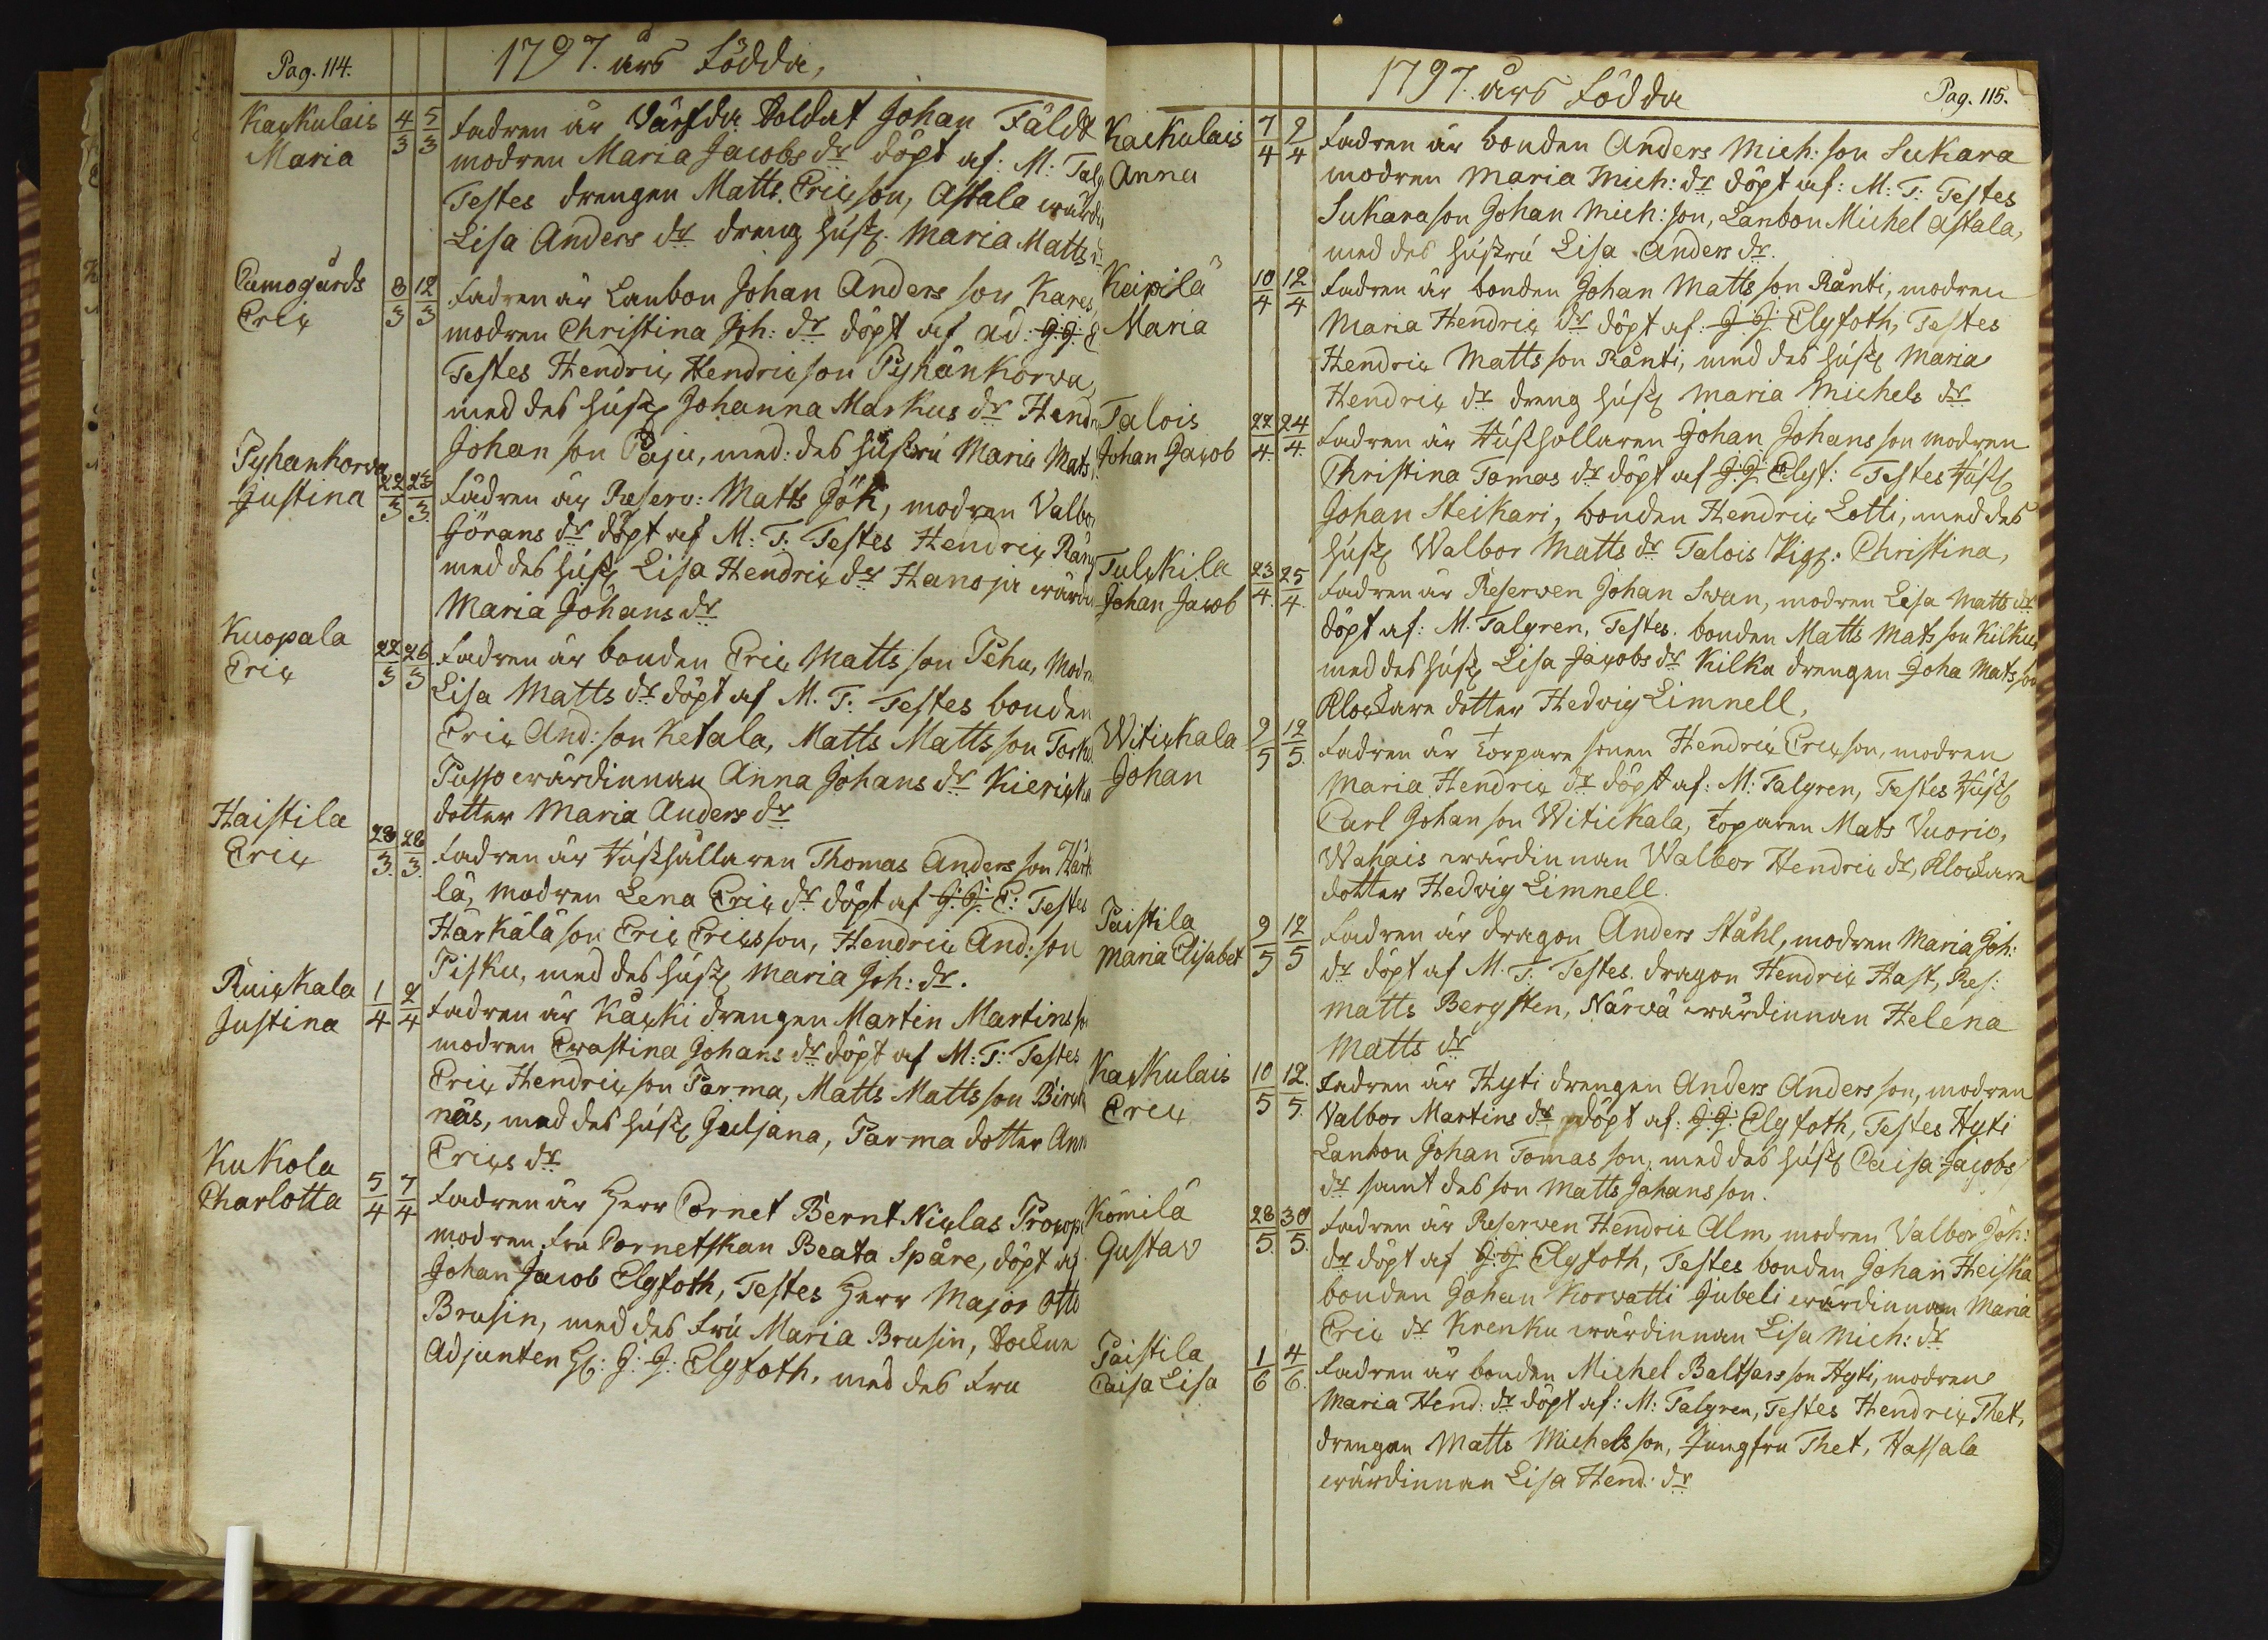 Pag. 114.
1797. års Födda,
Kackulais
Maria
4/3 5/3
Fadren är Värfda Soldat Johan Fäldt
modren Maria Jacobs dr döpt af: M: Talg
Testes drengen Matts Ericsson, Astala wärdi
Lisa Anders dr dreng hust. Maria Matts dr
Camogårds
Eric
8/3 12/3
Fadren är Lanbon Johan Anders son Kares,
modren Christina Joh: dr döpt af ad: J: J: E
Testes Hendric Hendricson Pyhänkorva,
med des hust Johanna Markus dr Hendr
Johan son Paju, med des hustru Maria Mats
Pyhankorva
Justina
22/3 23/3
Fadren är Reserv: Matts Jök, modren Valbor
Jörans dr döpt af M: T: Testes Hendric Räng
med des hust Lisa Hendric dr Hanoja wärdi
Maria Johans dr
Kuopala
Eric
22/3 26/3
Fadren är bonden Eric Matts son Pehu, Modre
Lisa Matts dr döpt af M. T: Testes bonden
Eric And: son Ketala, Matts Matts son Torko
Pusso wärdinnan Anna Johans dr Kiericka
dotter Maria Anders dr
Haistila
Eric
28/3 28/3
Fadren är Hushållaren Thomas Anders son Härk
lä, modren Lena Eric dr döpt af J: J: E: Testes
Härkälä son Eric Ericsson, Hendric And: son
Pisku, med des hust Maria Joh: dr.
Ruickala
Justina
1/4 2/4
Fadren är Kacki drengen Martin Martins so
modren Crastina Johans dr döpt af M: T: Testes
Eric Hendricson Parma, Matts Matts son Birck
näs, med des hust Juljana, Parma dotter Ann
Erics dr
Kukola
Charlotta
5/4 7/4
Fadren är Herr Cornet Bernt Niclas Procop
modren Fru Cornetskan Beata Spåre, döpt af
Johan Jacob Elgfoth, Testes Herr Major Otto
Brusin, med des Fru Maria Brusin, Sockne
Adjunten H: J: J: Elgfoth, med des Fru
1797. års Födda
Pag. 115.
Kackulais
Anna
7/4 9/4
Fadren är bonden Anders Mich: son Sukara
modren Maria Mich: dr döpt af: M: T: Testes
Sukara son Johan Mich: son, Lanbon Michel Astala,
med des hustru Lisa Anders dr.
Keipilä
Maria
10/4 12/4
Fadren är bonden Johan Matts son Ränti, modren
Maria Hendric dr döpt af: J: J: Elgfoth, Testes
Hendric Matts son Ränti, med des hust Maria
Hendric dr dreng hust Maria Michels dr
Talois
Johan Jacob
22/4. 24/4.
Fadren är Hushollaren Johan Johans son modren
Christina Tomas dr döpt af J: J: Elgf: Testes Hust
Johan Steikari, bonden Hendric Lotti, med des
hust Walbor Matts dr Talois Pig: Christina,
Tulckila
Johan Jacob
23/4. 25/4.
Fadren är Reserven Johan Swan, modren Lisa Matts dr
döpt af: M. Talgren, Testes. bonden Matts Mats son Kilku,
med des hust Lisa Jacobs dr Kilku drengen Joha Mats son
Klockare dotter Hedvig Limnell,
Witickala
Johan
9/5 12/5.
Fadren är torpare sonen Hendric Ericson, modren
Maria Hendric dr döpt af: M: Talgren, Testes Hust
Carl Johan son Witickala, toparen Mats Vuorio,
Wahais wärdinnan Walbor Hendric dr, Klockare
dotter Hedvig Limnell.
Paistila
Maria Elisabet
9/5 12/5
Fadren är dragon Anders Ståhl, modren Maria Joh:
dr döpt af M. T. Testes. dragon Hendric Hast, Res:
Matts Bergsten, Närvä wärdinnan Helena
Matts dr
Kackulais
Eric
10/5 12./5.
Fadren är Hyti drengen Anders Anders son, modren
Valbor Martins dr döpt af: J: J: Elgfoth, Testes Hyti
Lanbon Johan Tomas son, med des hust Caisa Jacobs
dr samt des son Matts Johans son.
Kömilä
Gustav
28/5. 30/5.
Fadren är Reserven Hendric Alm, modren Valbor Joh:
dr döpt af J: J: Elgfoth, Testes bonden Johan Heiskä
bonden Johan Korvatti Jubeli wärdinnan Maria
Eric dr Krenku wärdinnan Lisa Mich: dr
Paistila
Caisa Lisa
1/6 4/6.
Fadren är bonden Michel Baltsars son Hyti, modren
Maria Hend: dr döpt af: M: Talgren, Testes Hendric Thet,
drengen Matts Michelsson, Jungfru Thet, Hassala
wärdinnan Lisa Hend: dr